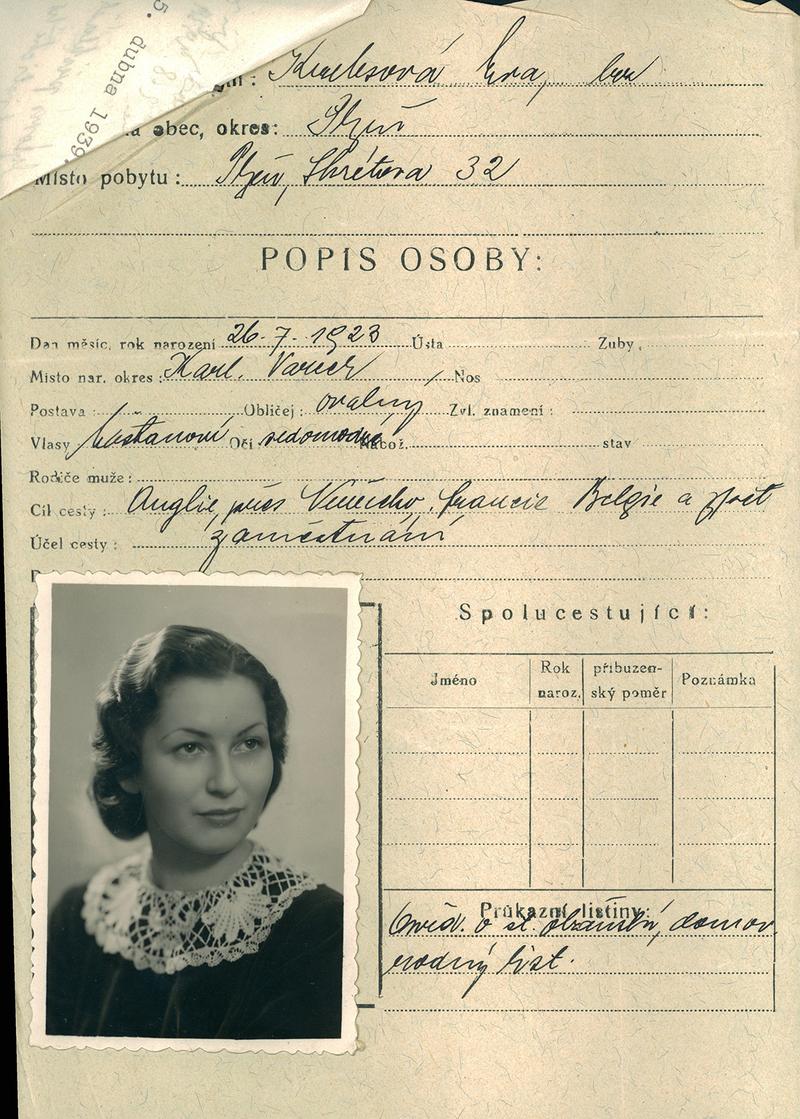 5. dubna 1939.
Eva,
obec, okres: Plzeň
Místo pobytu: Plzeň, Skrétova 32
POPIS OSOBY:
Den měsíc, rok narození 26.7.1923 Ústa Zuby
Místo nar. okres: Karl. Vary Nos
Postava: Obličej: ovalný Zvl. znamení:
Vlasy kaštanové Oči šedomodré Nábož. stav
Rodiče muže:
Cíl cesty: Anglie, přes Německo, Francie Belgie a zpět
Účel cesty: zaměstnání
Spolucestující:
Jméno Rok naroz. příbuzenský poměr Poznámka
Průkazní listiny:
o st. domov.
rodný list.